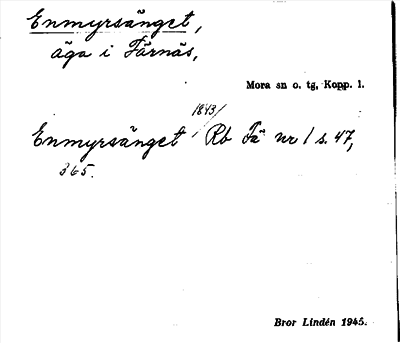 Enmyrsänget,
äga i Färnäs,
Mora sn o. tg, Kopp. l.
1843/
Enmyrsänget Rb Fä nr 1 s. 47,
365.
Bror Lindén 1945.